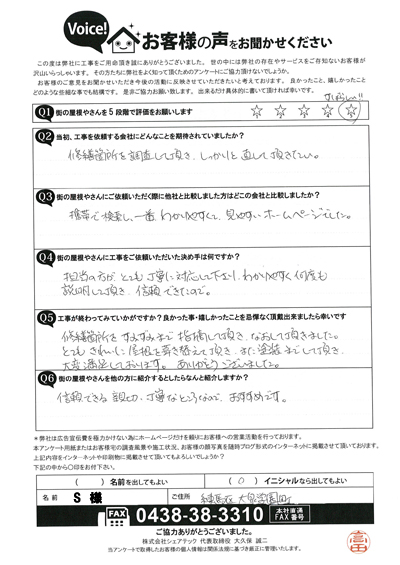 Voice!
お客様の声をお聞かせください
この度は弊社に工事をご用命頂き誠にありがとうございました。世の中には弊社の存在やサービスをご存知ないお客様が
沢山いらっしゃいます。その方たちに弊社をよく知って頂くためのアンケートにご協力頂けないでしょうか。
お客様のご意見をお聞かせいただき今後の活動に反映させていただきたいと考えております。良かったこと、嬉しかったこと
どのような些細な事でも結構です。是非ご協力お願い致します。出来るだけ具体的に書いて頂ければ幸いです。
すばらしい!!
Q1 街の屋根やさんを5段階で評価をお願いします ☆ ☆ ☆ ☆ ☆
Q2 当初、工事を依頼する会社にどんなことを期待されていましたか?
修繕箇所を調査して頂き、しっかりと直して頂きたい。
Q3 街の屋根やさんにご依頼いただく際に他社と比較しました方はどこの会社と比較しましたか?
携帯で検索し、一番わかりやすくて、見やすいホームページでした。
Q4 街の屋根やさんに工事をご依頼いただいた決め手は何ですか?
担当の方が、とても丁寧に対応して下さり、わかりやすく何度も
説明して頂き、信頼できたので。
Q5 工事が終わってみていかがですか?良かった事・嬉しかったことを忌憚なく頂戴出来ましたら幸いです
修繕箇所をすみずみまで指摘して頂き、なおして頂きました。
とてもきれいに屋根を葺き替えて頂き、また塗装までして頂き、
大変満足しております。ありがとうございました。
Q6 街の屋根やさんを他の方に紹介するとしたらなんと紹介しますか?
信頼できる、親切、丁寧なところなので、おすすめです。
*弊社は広告宣伝費を極力かけない為にホームページだけを頼りにお客様への営業活動を行っております。
本アンケート用紙またはお客様宅の調査風景や施工状況、お客様の顔写真を随時ブログ形式のインターネットに掲載させて頂いております。
上記内容をインターネットや印刷物に掲載させて頂いてもよろしいでしょうか?
下記の中から○印をお付下さい。
( )名前を出してもよい ( ○ )イニシャルなら出してもよい
名前 S 様 ご住所 練馬区大泉学園町
FAX 0438-38-3310 本社直通 FAX番号
ご協力ありがとうございました。
株式会社シェアテック 代表取締役 大久保 誠二
当アンケートで取得したお客様の個人情報は関係法規に基づき厳正に管理いたします。